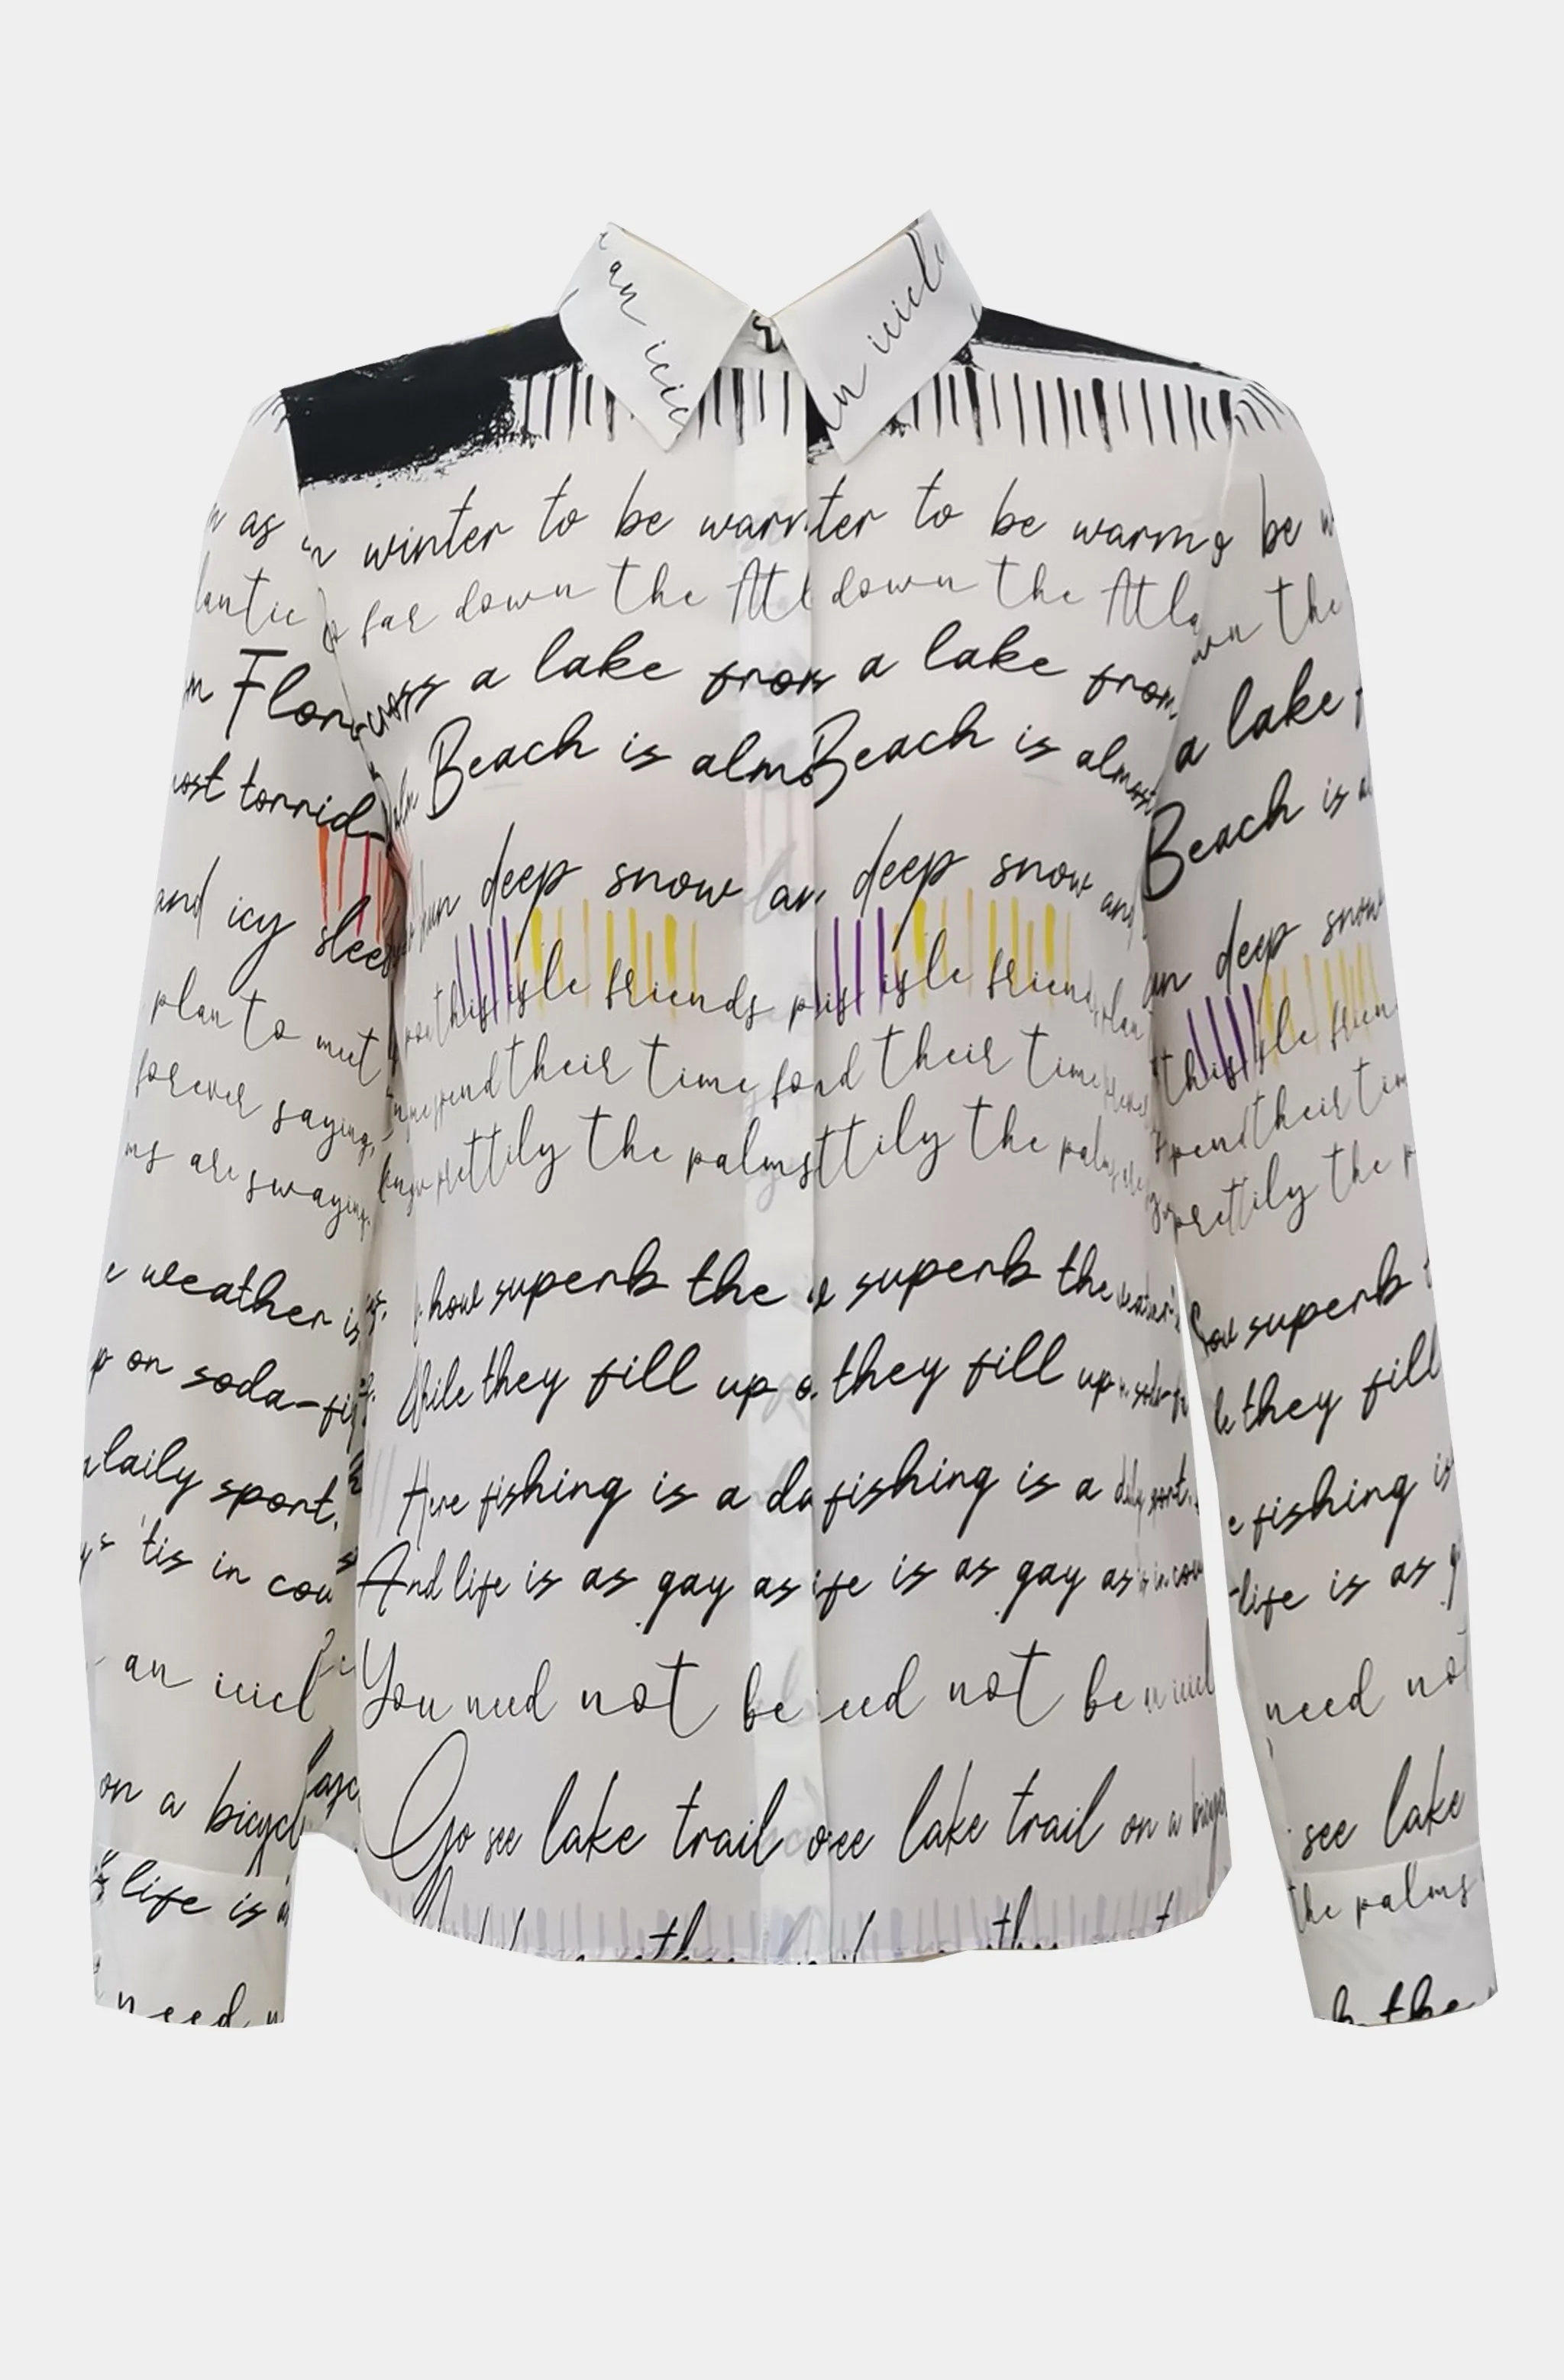 an icic
an icicl
as winter to be warm ter to be warm be
lantic far down the Atl down the Atla wn the
Flor a lake from a lake from a lake
most torrid Beach is almo Beach is almost Beach is a
and icy sleet deep snow an deep snow and deep snow
plan to meet this isle friends isle friends this isle frien
forever saying, spend their time fo d their time spend their tim
ms are swaying. prettily the palms ttily the palms prettily the p
e weather is how superb the w superb the weather's how superb
p on soda-fi While they fill up o they fill up they fill
daily sport. Here fishing is a da fishing is a daily sport. e fishing is
'tis in cou And life is as gay as ife is as gay as life is as g
an icicl You need not be eed not be need not
on a bicycl Go see lake trail o see lake trail on a bicycl see lake
life is the palms
need
the